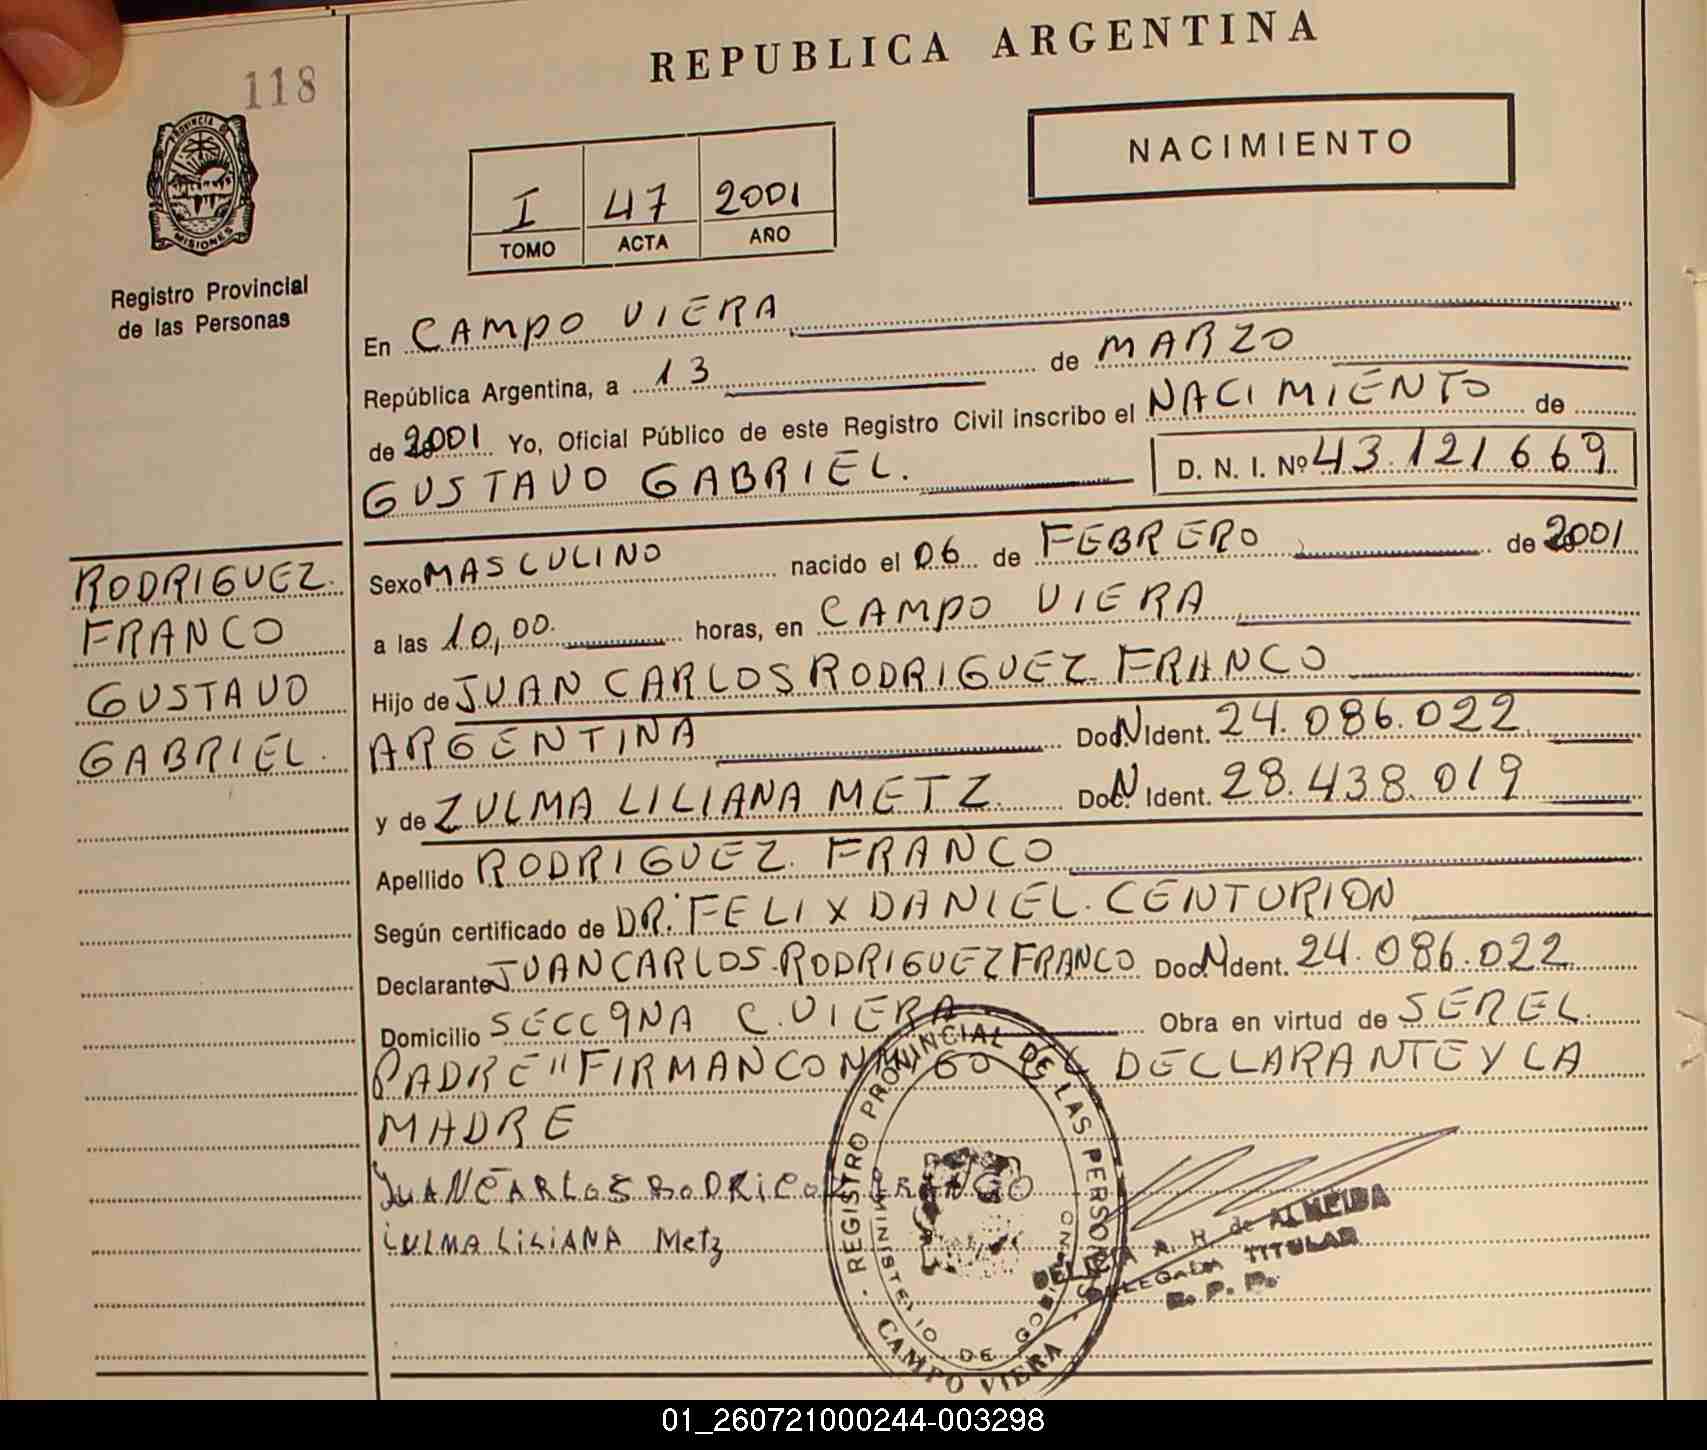 118
PROVINCIA DE
MISIONES
Registro Provincial
de las Personas
REPUBLICA ARGENTINA
NACIMIENTO
I 47 2001
TOMO ACTA AÑO
En CAMPO VIERA
República Argentina, a 13 de MARZO
de 2001 Yo, Oficial Público de este Registro Civil inscribo el NACIMIENTO de
GUSTAVO GABRIEL. D. N. I. Nº 43.121669
RODRIGUEZ
FRANCO
GUSTAVO
GABRIEL.
Sexo MASCULINO nacido el 06 de FEBRERO de 2001
a las 10,00. horas, en CAMPO VIERA
Hijo de JUAN CARLOS RODRIGUEZ FRANCO
ARGENTINA Doc. N Ident. 24.086.022
y de ZULMA LILIANA METZ Doc. N Ident. 28.438.019
Apellido RODRIGUEZ FRANCO
Según certificado de DR. FELIX DANIEL CENTURION
Declarante JUAN CARLOS RODRIGUEZ FRANCO Doc. N Ident. 24.086.022
Domicilio SECC 9NA C. VIERA Obra en virtud de SER EL
PADRE" FIRMAN CONMIGO EL DECLARANTE Y LA
MADRE
JUAN CARLOS RODRIGUEZ FRANCO
ZULMA LILIANA Metz
REGISTRO PROVINCIAL DE LAS PERSONAS
MINISTERIO DE GOBIERNO
CAMPO VIERA
A. H. de ALMEIDA
DELEGADA TITULAR
R. P. P.
01_260721000244-003298